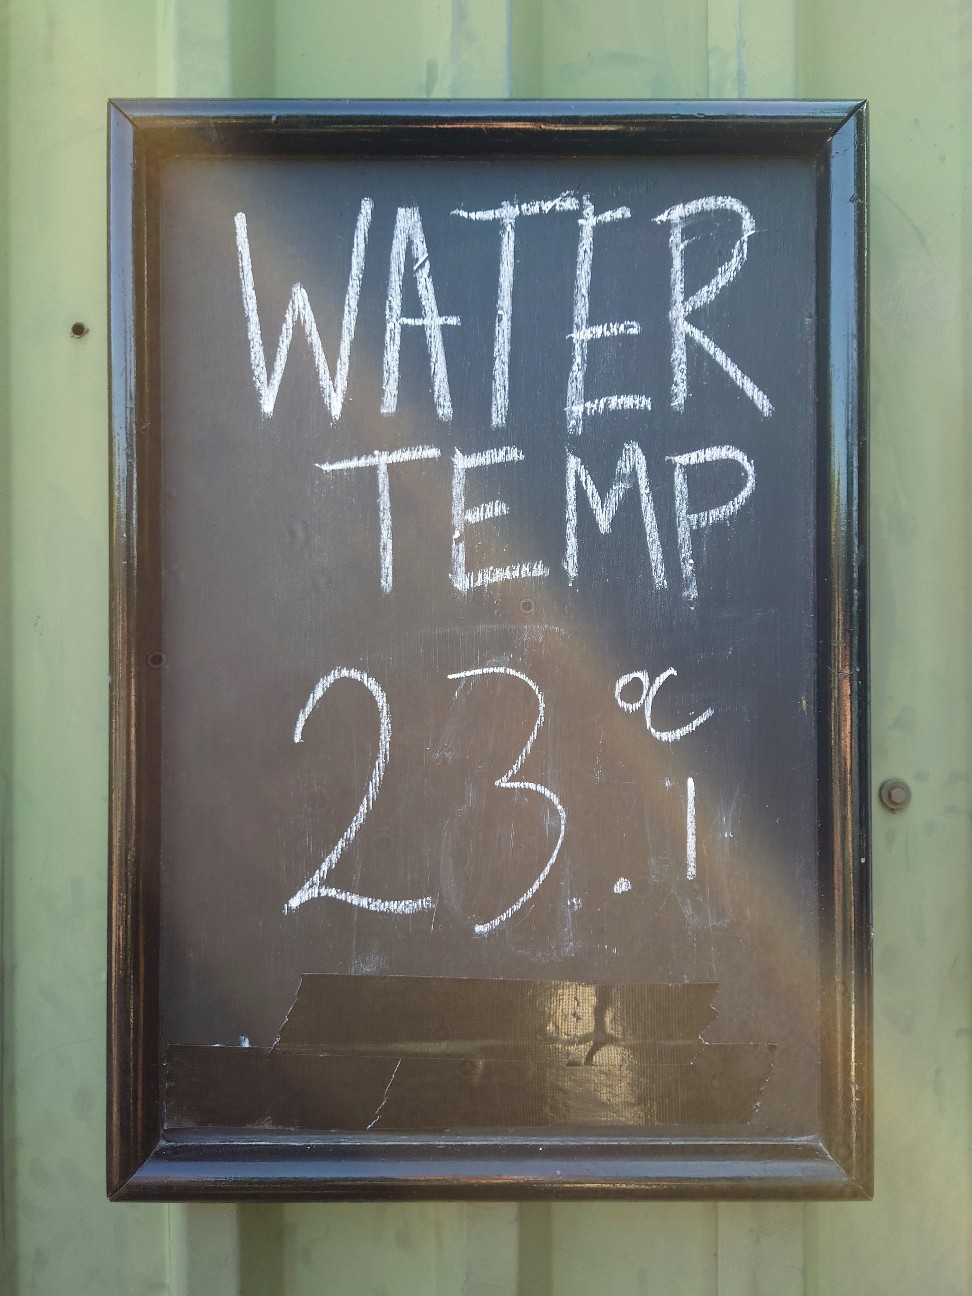 WATER
TEMP
23.1°C